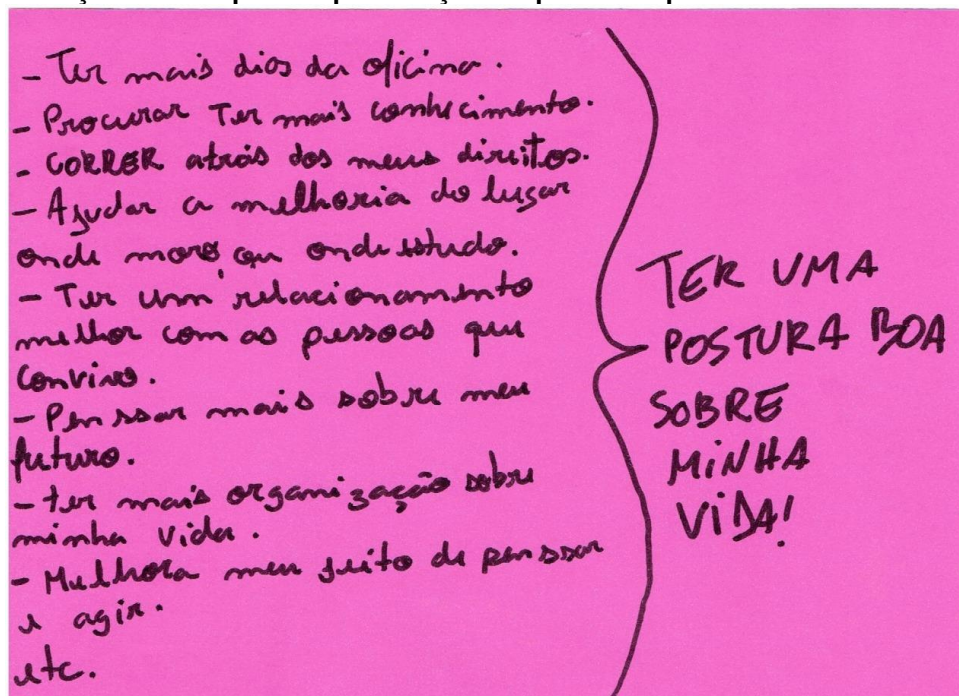 - Ter mais dias da oficina.
- Procurar Ter mais conhecimento.
- CORRER atrás dos meus direitos.
- Ajudar a melhoria do lugar
onde moro, ou onde estudo.
- Ter um relacionamento
melhor com as pessoas que
convivo.
- Penssar mais sobre meu
futuro.
- ter mais organização sobre
minha vida.
- Melhora meu jeito de penssar
e agir.
etc.
TER UMA
POSTURA BOA
SOBRE
MINHA
VIDA!